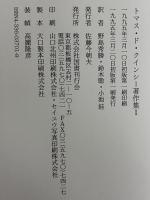 トマス・ド・クインシー著作集Ⅰ
一九九五年三月一〇日初版第一刷印刷
一九九五年三月二〇日初版第一刷発行
訳者 野島秀勝・鈴木聡・小池銈
発行者 佐藤今朝夫
発行所 株式会社国書刊行会
東京都板橋区志村一―一〇―
電話〇三―五九七〇―七四二一 FAX〇三―五九七〇―七四二七
印刷 山口北州印刷株式会社・セイユウ写真印刷株式会社
製本 大口製本印刷株式会社
装幀 高麗隆彦